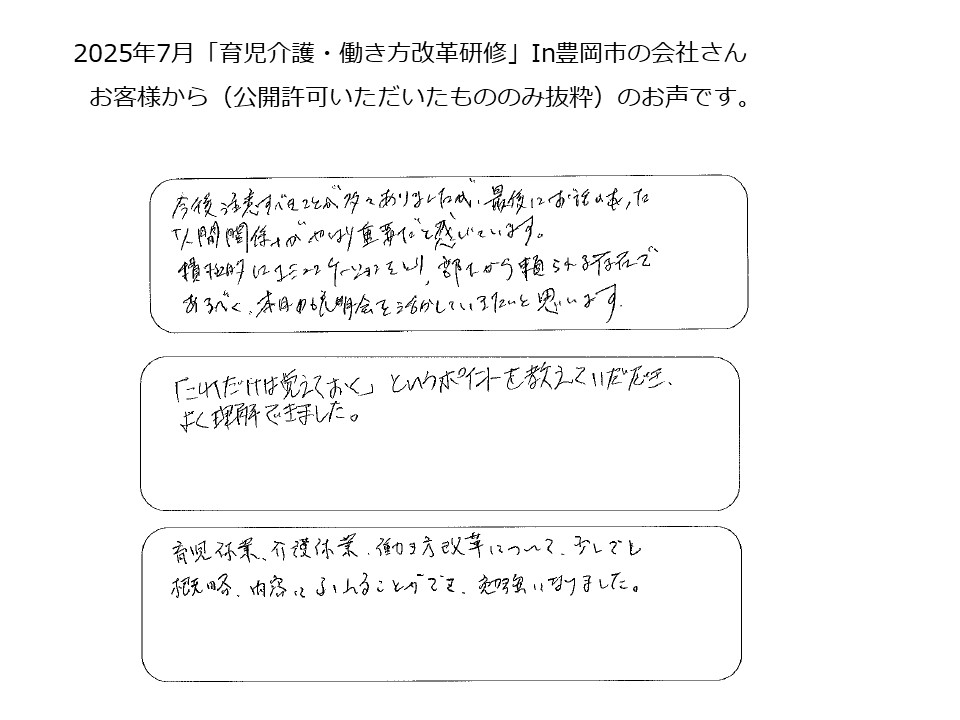 2025年7月「育児介護・働き方改革研修」In豊岡市の会社さん
お客様から（公開許可いただいたもののみ抜粋）のお声です。
今後注意すべきことが多々ありましたが、最後にお話のあった
「人間関係」がやはり重要だと感じています。
積極的にコミュニケーションをとり、部下から頼られる存在で
あるべく、本日の説明会を活かしていきたいと思います。
「これだけは覚えておく」というポイントを教えていただき、
よく理解できました。
育児休業、介護休業、働き方改革について、少しでも
概略、内容にふれることができ、勉強になりました。